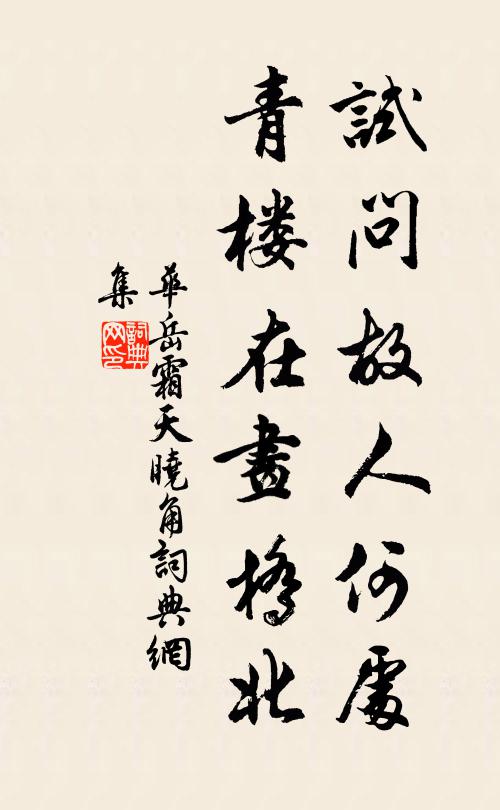 試問故人何處
青楼在畫橋北
華岳霜天曉角詞典網
集
詞典網印